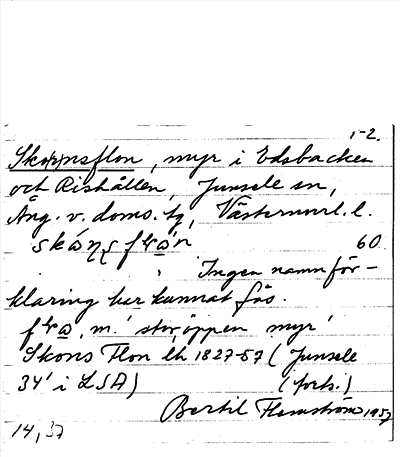 1-2.
Skoppsflon, myr i Edsbacken
och Rishållen, Junsele sn,
Ång. v. doms. tg, Västernorrl. l.
60
Ingen namnför-
klaring har kunnat fås.
m. 'stor, öppen myr'
Skons Flon lh 1827-57 (Junsele
34' i LSA) (forts.)
Bertil Flemström 1957
14, 37